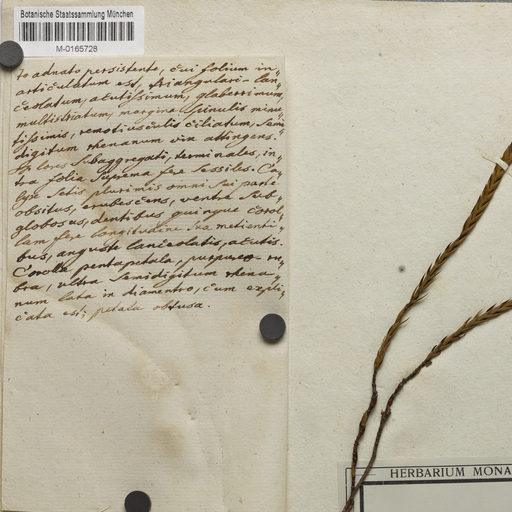 Botanische Staatssammlung München
M-0165728
to adnato persistente, cui folium in„
articulatum est, triangulari-lan„
ceolatum, acutissimum, glaberrimum,
multistriatum, margine spinulis minu„
tissimis, remotiusculis ciliatum, semi„
digitum rhenanum vix attingens.
Flores subaggregati, terminales, in„
tra folia suprema fere sessiles. Ca„
lyx setis plurimis omni sui parte
obsitus, erubescens, ventre sub„
globosus, dentibus quinque corol„
lam fere longitudine sua metienti„
bus, anguste lanceolatis, acutis.
Corolla pentapetala, purpureo-ru„
bra, ultra semidigitum rhena„
num lata in diamentro, cum expli„
cata est; petala obtusa.
HERBARIUM MONA